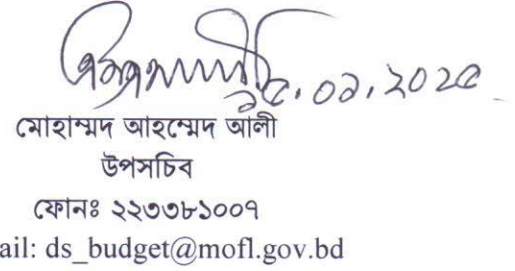 ১৫.০১.২০২৫
মোহাম্মদ আহম্মেদ আলী
উপসচিব
ফোনঃ ২২৩৩৮১০০৭
ail: ds_budget@mofl.gov.bd